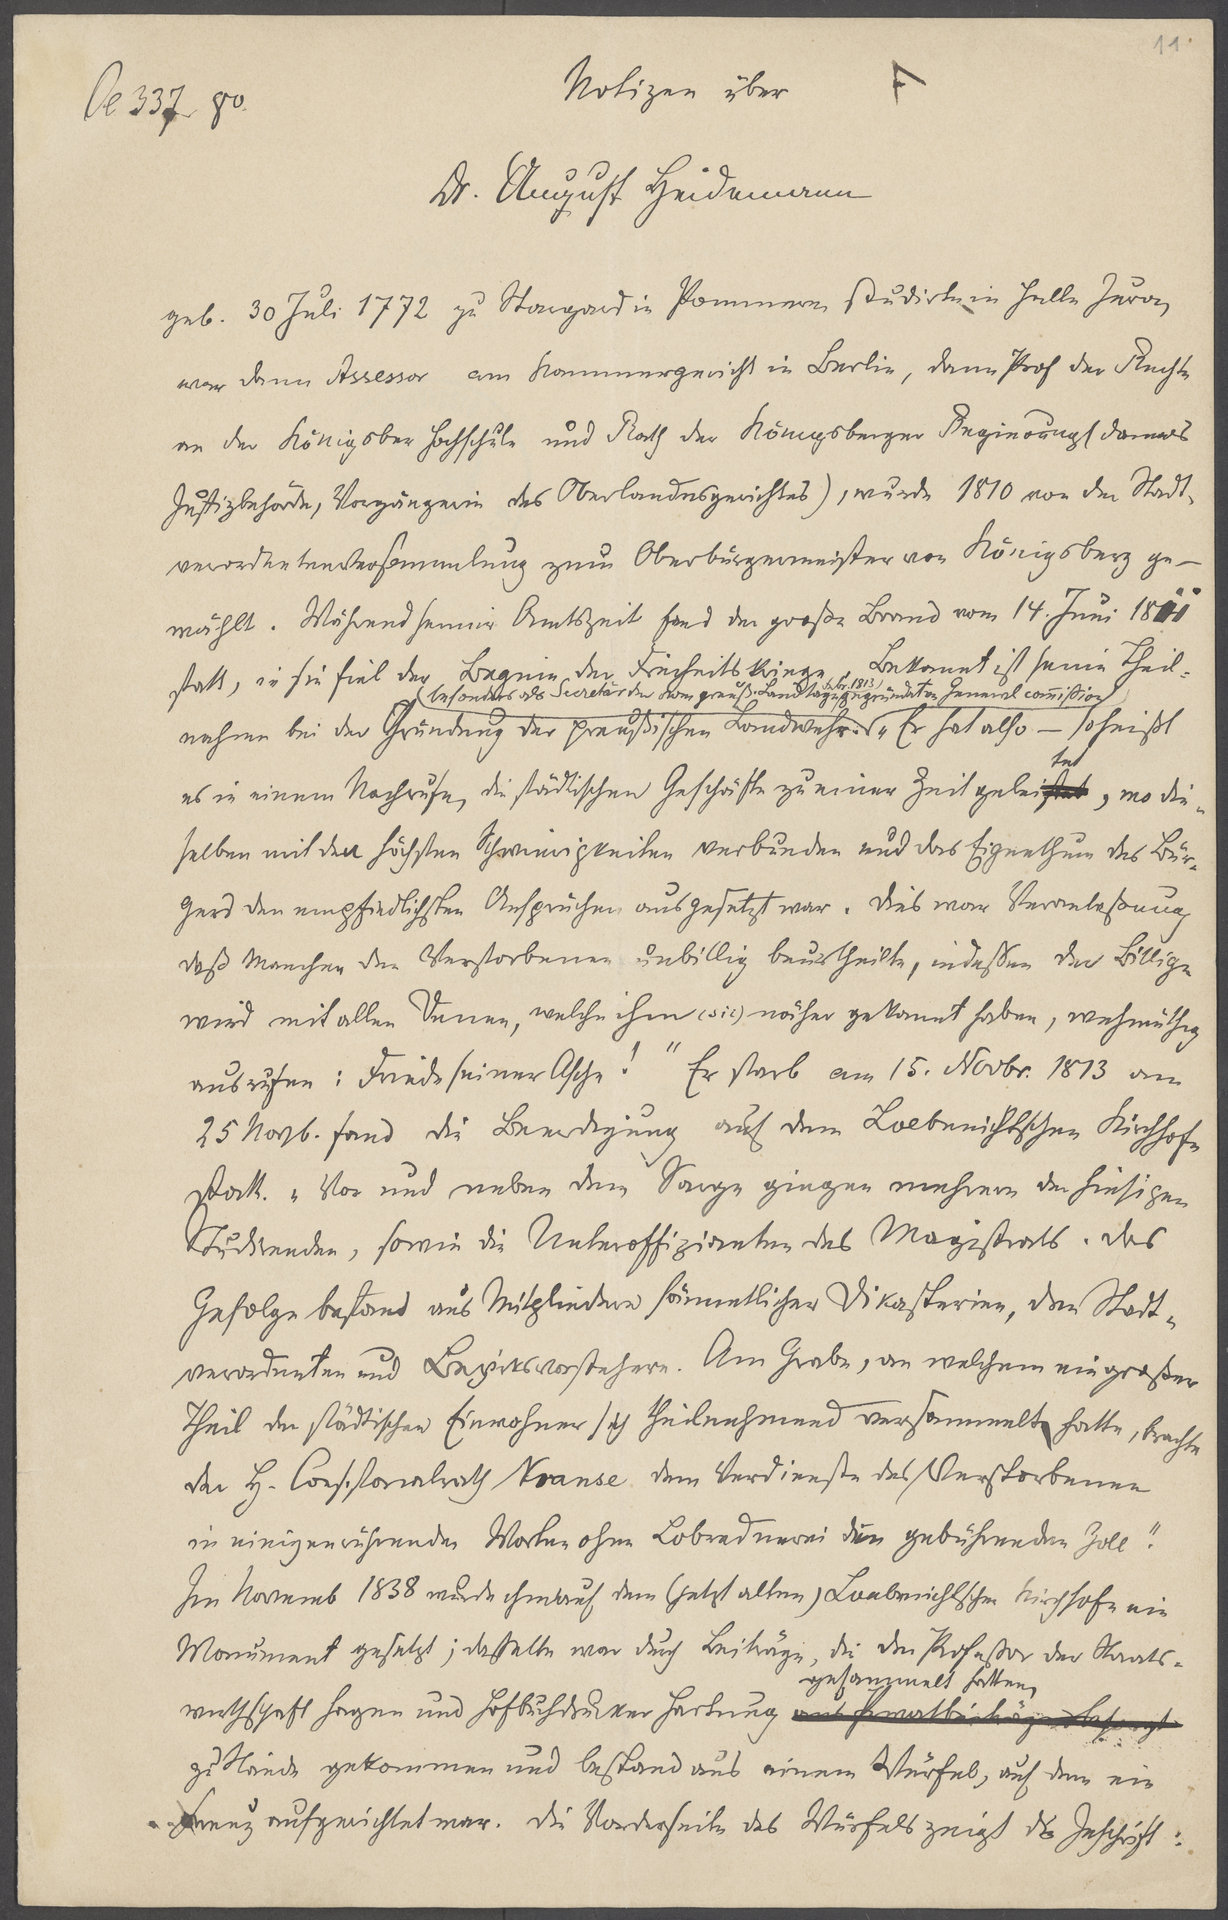 11.
Oe 337 80.
Notizen über
F
Dr. August Heidemann
geb. 30 Juli 1772 zu Stargard in Pommern, studirte in Halle Jura,
war dann Assessor am Kammergericht in Berlin, dann Prof der Rechte
an der Königsber Hochschule und Rath der Königsberger Regierung (damals
Justizbehörde, Vorgängerin des Oberlandesgerichtes), wurde 1810 von der Stadt-
verordnetenversammlung zum Oberbürgermeister von Königsberg ge-
wählt. Während seiner Amtszeit fand der große Brand vom 14. Juni 1811
statt, in sie fiel der Beginn der Freiheitskriege. Bekannt ist seine Theil-
besonders als Secretär der vom preuß. Landtage gegründeten General commission
nahme bei der Gründung der preußischen Landwehr. „Er hat also – so heißt
es in einem Nachrufe, die städtischen Geschäfte zu einer Zeit geleitet, wo die-
selben mit den höchsten Schwierigkeiten verbunden und das Eigenthum des Bür-
gers den empfindlichsten Ansprüchen ausgesetzt war. Dies war Veranlaßung
daß Mancher den Verstorbenen unbillig beurtheilte, indessen der Billige
wird mit allen Denen, welche ihm (sic) näher gekannt haben, wehmüthig
ausrufen: Friede seiner Asche!“ Er starb am 15. Novbr. 1813 am
25 Novb. fand die Beerdigung auf dem Loebenichtschen Kirchhofe
statt. „Vor und neben dem Sarge gingen mehrere der hiesigen
Studirenden, sowie die Unteroffizianten des Magistrats. Das
Gefolge bestand aus Mitgliedern sämmtlicher Dikasterien, den Stadt-
verordneten und Bezirksvorstehern. Am Grabe, an welchem ein großer
Theil der städtischen Einwohner sich theilnehmend versammelt hatte, brachte
der H. Consistorialrath Krause dem Verdienste des Verstorbenen
in einigen rührenden Worten ohne Lobrednerei den gebührenden Zoll“.
Im Novemb 1838 wurde ihm auf dem (jetzt alten) Loebenichtschen Kirchhofe ein
Monument gesetzt; dasselbe war durch Beiträge, die der Professor der Staats-
gesammelt hatten,
wirthschaft Hagen und Hofbuchdrucker Hartung
zu Stande gekommen und bestand aus einem Würfel, auf dem ein
Kreuz aufgerichtet war. Die Vorderseite des Würfels zeigt die Inschrift: